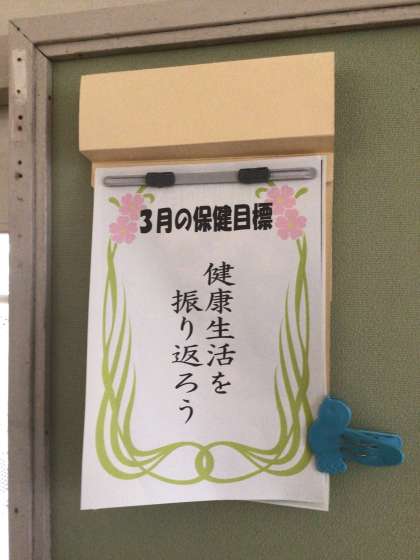 3月の保健目標
健康生活を
振り返ろう